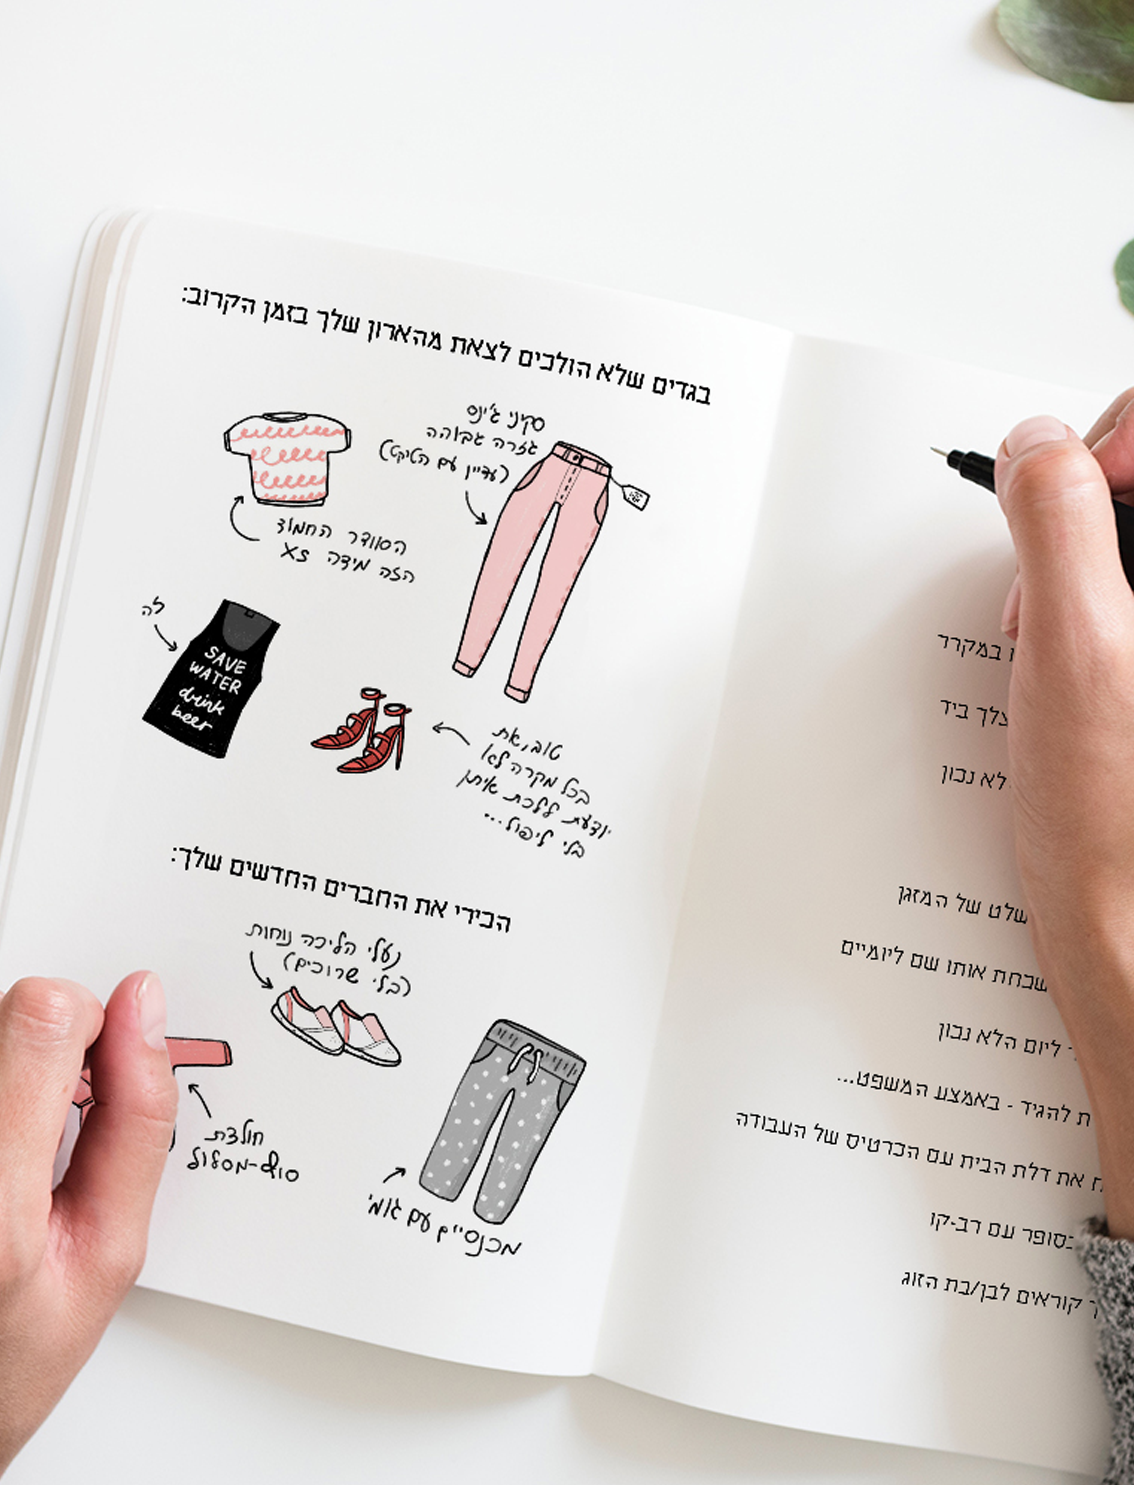 בגדים שלא הולכים לצאת מהארון שלך בזמן הקרוב:
סקיני ג'ינס
גזרה גבוהה
(עדיין עם הטיקט)
הסוודר החמוד
הזה מידה XS
לה
SAVE
WATER
drink
beer
טוב, את
בכל מקרה לא
יודעת ללכת איתן
בלי ליפול...
הכירי את החברים החדשים שלך:
נעלי הליכה נוחות
(בלי שרוכים)
חולצת
סוף-מסלול
מכנסיים עם גומי
במקרר
אצלך ביד
לא נכון
שלט של המזגן
שכחת אותו שם ליומיים
ליום הלא נכון
להגיד - באמצע המשפט...
את דלת הבית עם הכרטיס של העבודה
בסופר עם רב-קו
קוראים לבן/בת הזוג